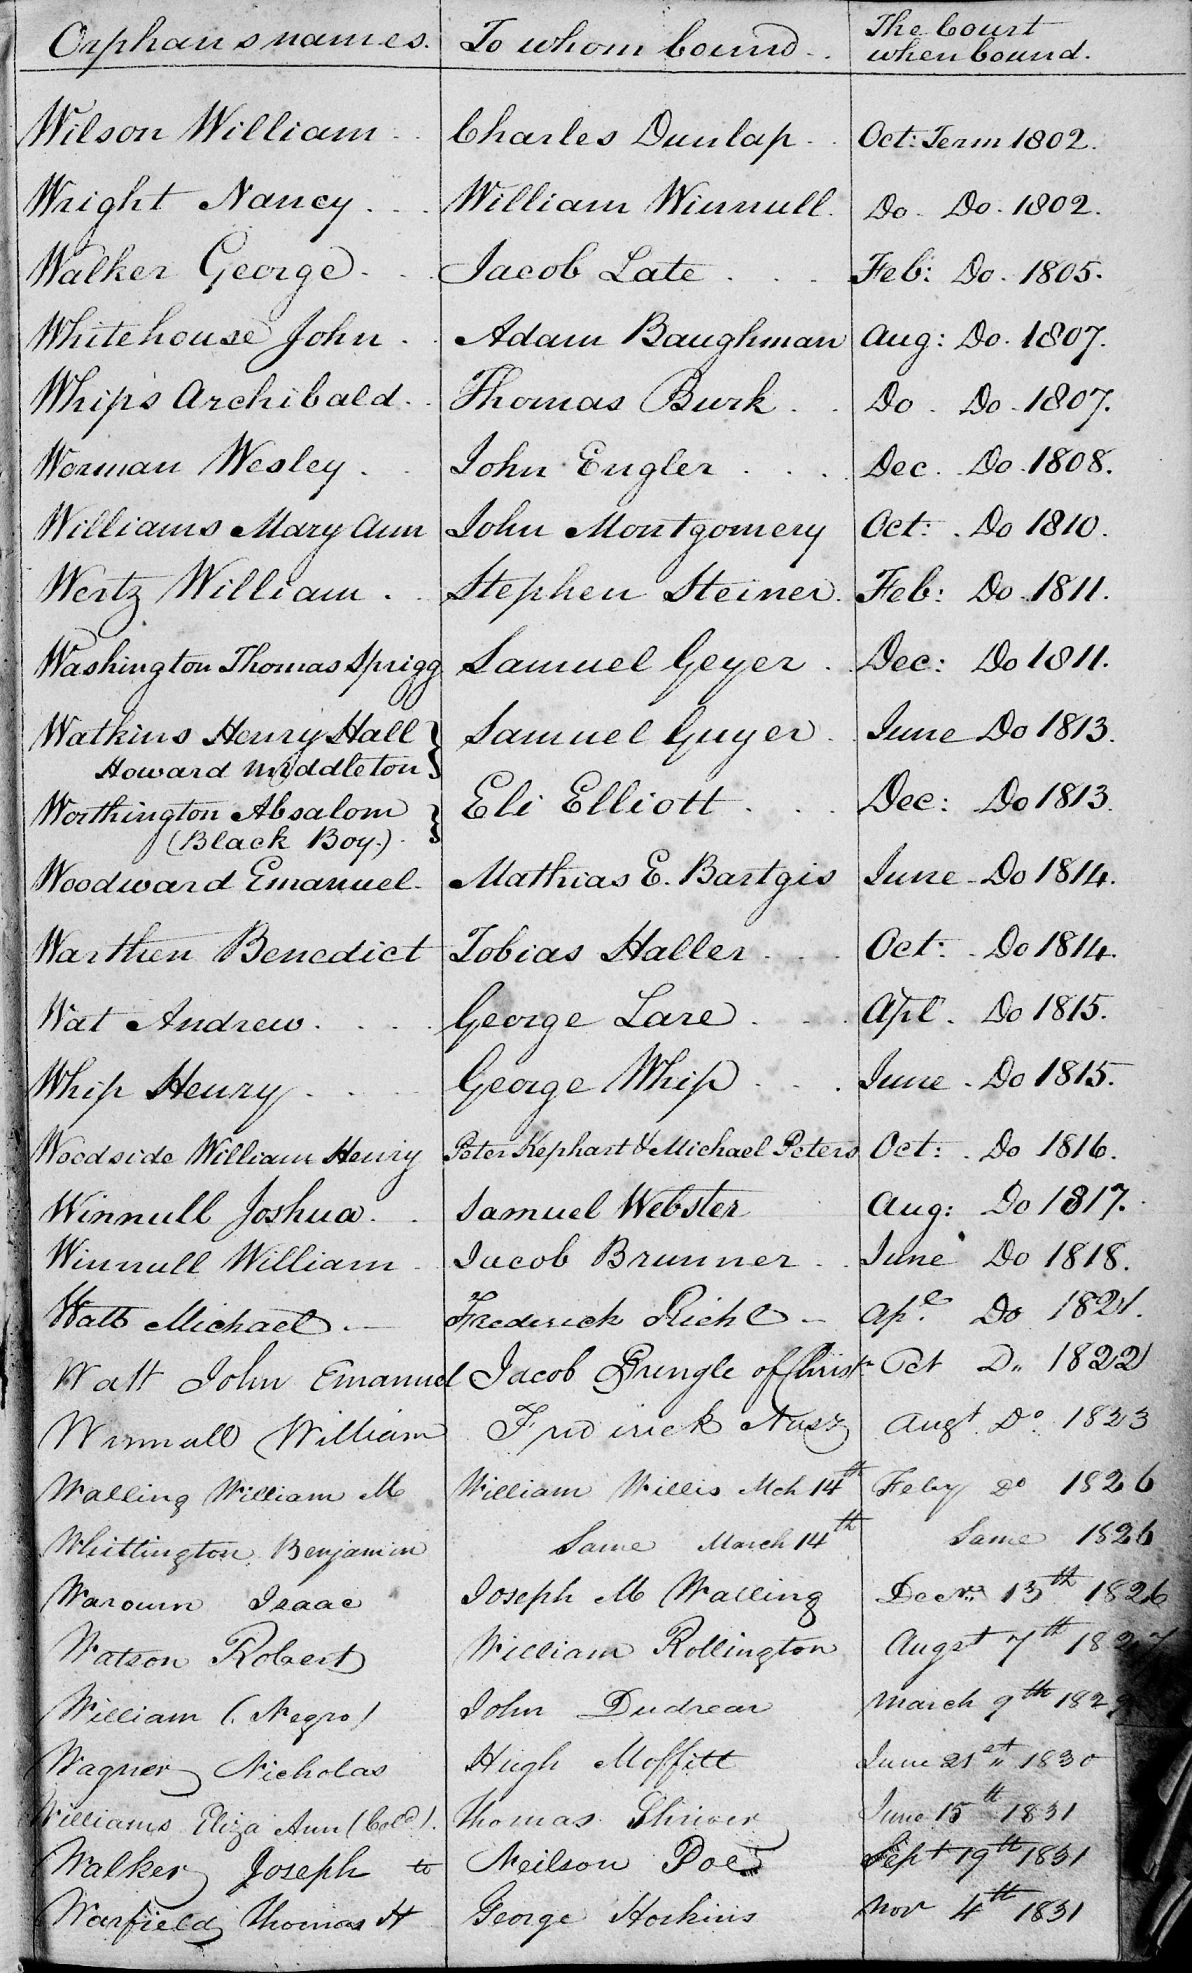 Orphans names. To whom bound. The Court when bound.
Wilson William Charles Dunlap Oct: Term 1802.
Wright Nancy William Winnull Do Do 1802.
Walker George Jacob Late Feb: Do 1805.
Whitehouse John Adam Baughman Aug: Do 1807.
Whips Archibald Thomas Burk Do Do 1807.
Worman Wesley John Engler Dec Do 1808.
Williams Mary Ann John Montgomery Oct: Do 1810.
Wertz William Stephen Steiner Feb: Do 1811.
Washington Thomas Sprigg Samuel Geyer Dec: Do 1811.
Watkins Henry Hall Samuel Guyer June Do 1813.
Howard Middleton
Worthington Absalom Eli Elliott Dec: Do 1813.
(Black Boy.)
Woodward Emanuel Mathias E. Bartgis June Do 1814.
Warthen Benedict Tobias Haller Oct: Do 1814.
Wat Andrew George Lare Apl. Do 1815.
Whip Henry George Whip June Do 1815.
Woodside William Henry Peter Kephart & Michael Peters Oct: Do 1816.
Winnull Joshua Samuel Webster Aug: Do 1817.
Winnull William Jacob Brunner June Do 1818.
Watts Michael Frederick Riehl Ap.l Do 1821.
Watt John Emanuel Jacob Bungle of Christn Oct Do 1822
Winnull William Frederick Nusz Augt Do 1823
Walling William M William Willis Mch 14th Feby Do 1826
Whittington Benjamin Same March 14th Same 1826
Isaac Joseph M Walling Decr 13th 1826
Watson Robert William Rollington Augst 7th 1827
William (Negro) John Dudrear March 9th 1829
Wagner Nicholas Hugh Moffitt June 21st 1830
Williams Eliza Ann (Cold). Thomas Shriver June 15th 1831
Walker Joseph to Neilson Poe Sept 19th 1831
Warfield Thomas H George Hoskins Nov 4th 1831